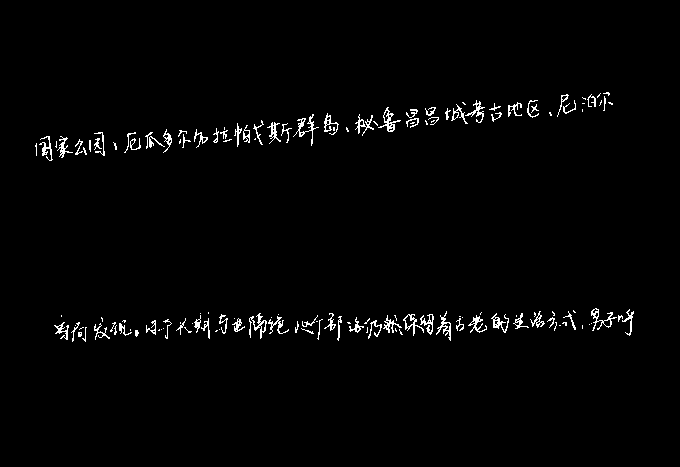 国家公园、厄瓜多尔加拉帕戈斯群岛、秘鲁昌昌城考古地区、尼泊尔
发现。由于长期与世隔绝，这个部落仍然保留着古老的生活方式，男子呼